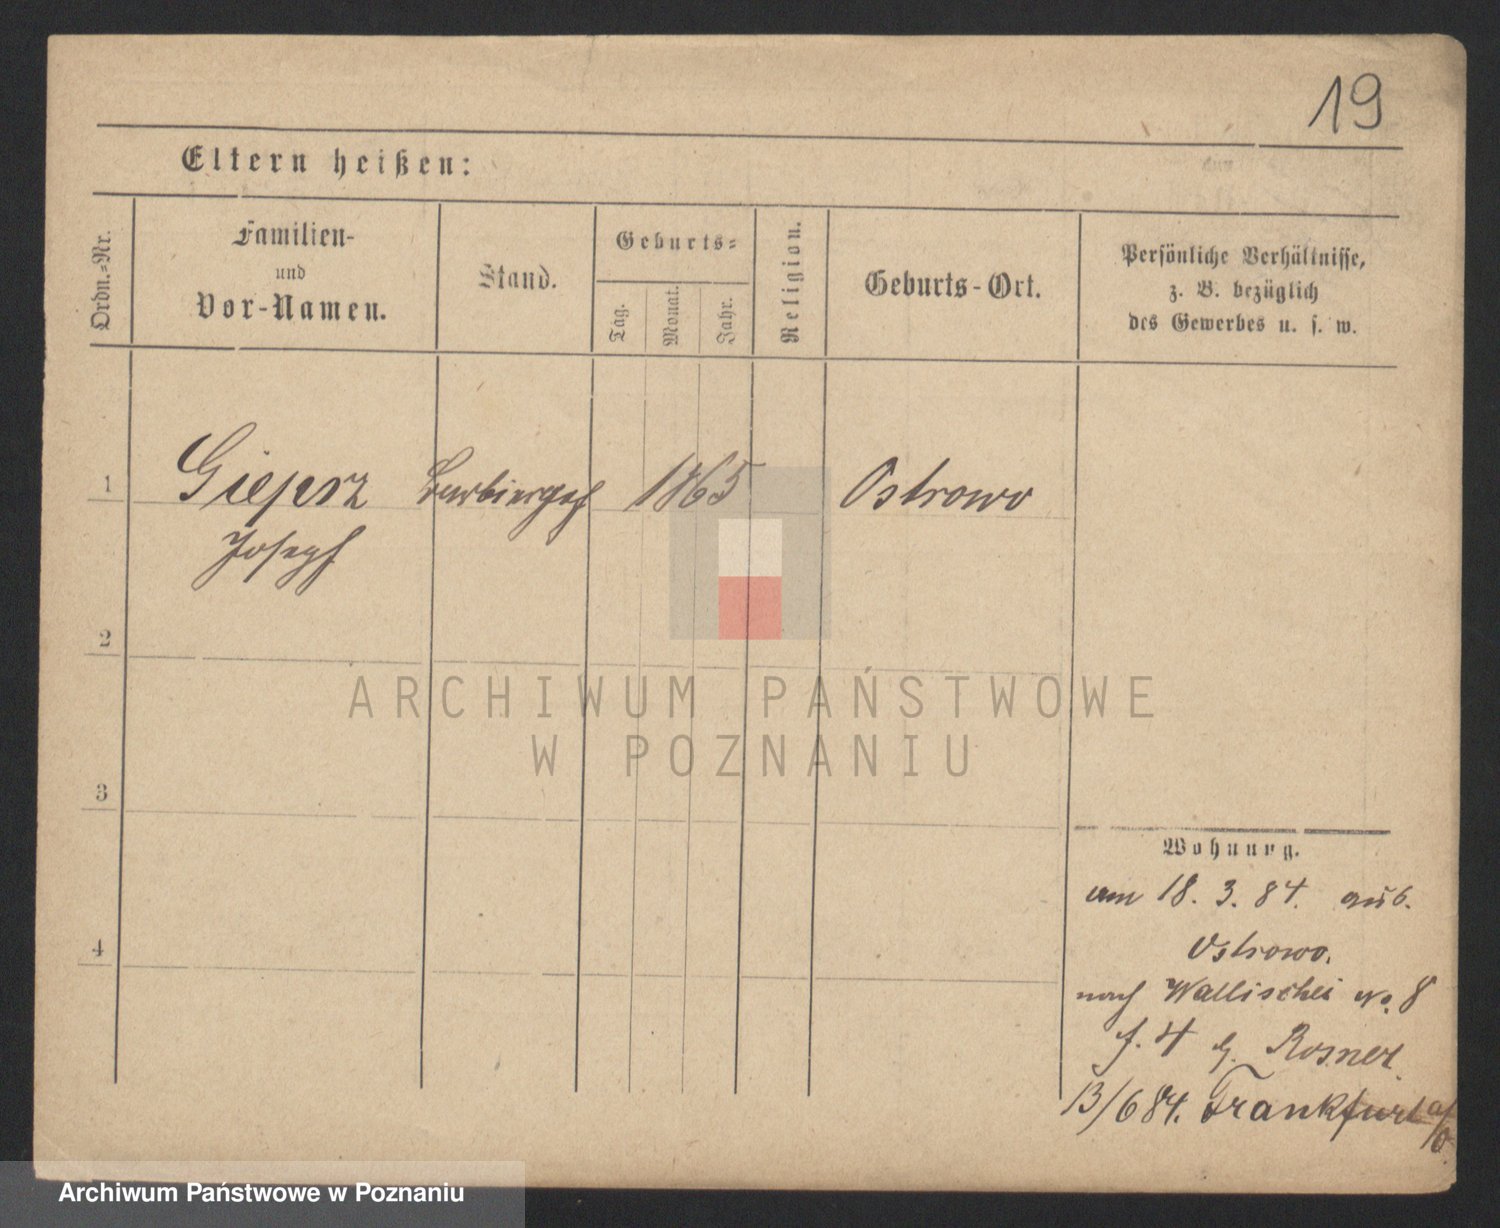 19
Eltern heißen:
Ordn.=Nr.
Familien-
und
Vor-Namen.
Stand.
Geburts=
Tag.
Monat.
Jahr.
Religion.
Geburts-Ort.
Persönliche Verhältnisse,
z. B. bezüglich
des Gewerbes u. s. w.
1 Gieperz Barbiergeh 1865 Ostrowo
Joseph
2
3
4
ARCHIWUM PAŃSTWOWE
W POZNANIU
Wohnung.
am 18. 3. 84. aus.
Ostrowo.
nach Wallischei No. 8
f. 4 b. Rosner
13/6 84. Frankfurt a/O.
Archiwum Państwowe w Poznaniu